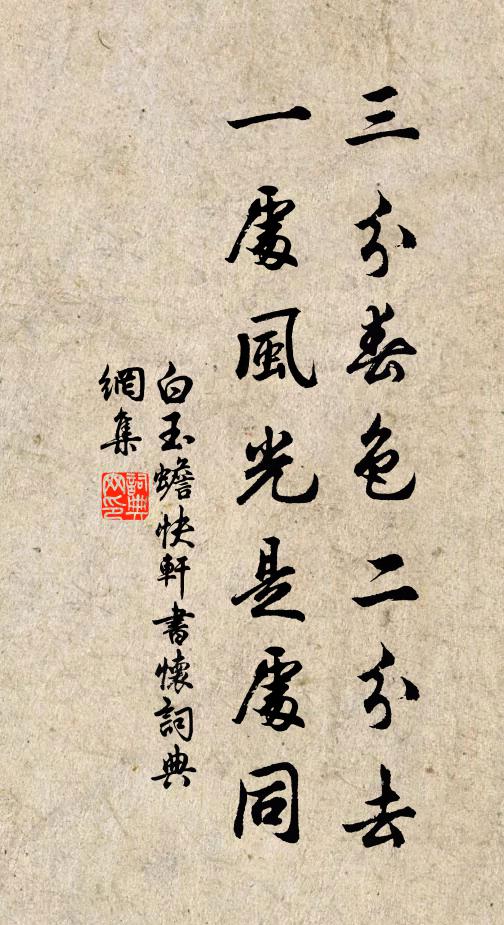 三分春色二分去
一處風光是處同
白玉蟾快軒書懷詞典
網集
詞典
網印